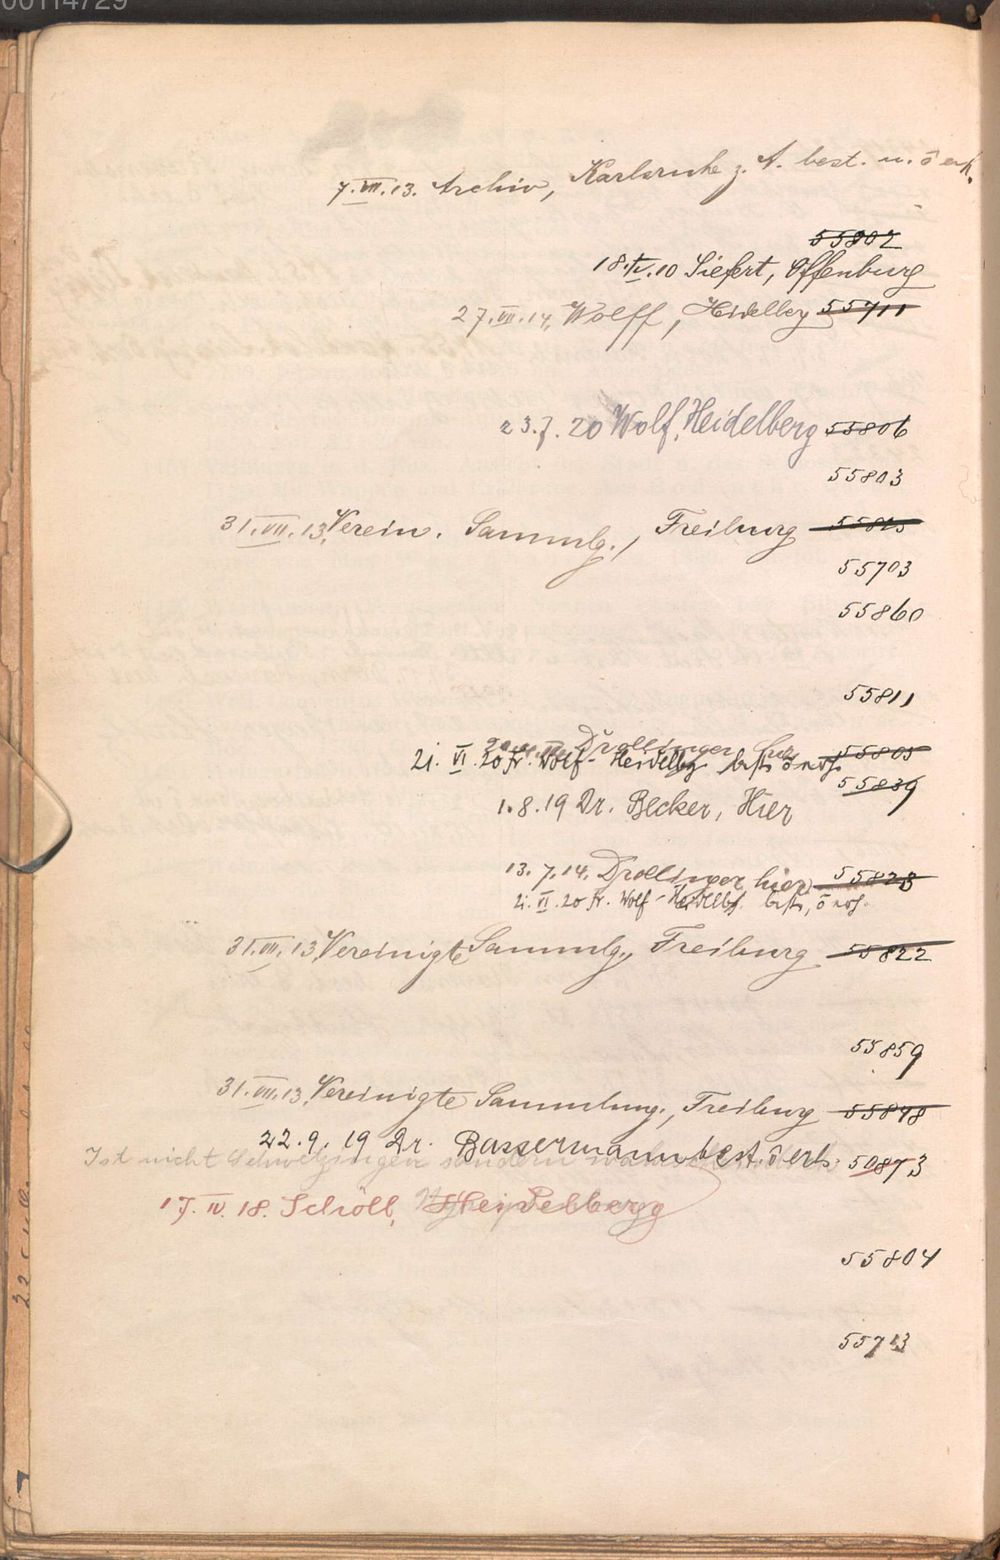 00114729
7. VII. 13. Archiv, Karlsruhe z. A. best. u. ō erh.
55802
18. IV. 10 Siefert, Offenburg
27. VII. 14, Wolff, Heidelbg 55711
23. 7. 20 Wolf, Heidelberg 55806
55803
31. VII. 13, Verein. Sammlg., Freiburg 55815
55703
55860
55811
Drollinger hier 55805
21. VI. 20 Fr. Wolf - Heidelbg best. ō
55839
1. 8. 19 Dr. Becker, Hier
13. 7. 14. Drollinger, hier 55823
21. VI. 20 Fr. Wolf - Heidelbg. best., ō
31. VII. 13, Vereinigte Sammlg., Freiburg 55822
55859
31. VII. 13, Vereinigte Sammlung., Freiburg 55848
22. 9. 19 Dr. Bassermann best. ō erh. 50873
Ist nicht Schwetzingen sondern
17. IV. 18. Schöll, Heidelberg
55804
55713